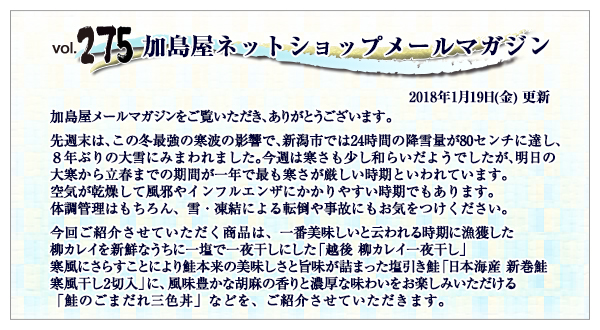 vol.275 加島屋ネットショップメールマガジン
2018年1月19日(金) 更新
加島屋メールマガジンをご覧いただき、ありがとうございます。
先週末は、この冬最強の寒波の影響で、新潟市では24時間の降雪量が80センチに達し、
８年ぶりの大雪にみまわれました。今週は寒さも少し和らいだようでしたが、明日の
大寒から立春までの期間が一年で最も寒さが厳しい時期といわれています。
空気が乾燥して風邪やインフルエンザにかかりやすい時期でもあります。
体調管理はもちろん、雪・凍結による転倒や事故にもお気をつけください。
今回ご紹介させていただく商品は、一番美味しいと云われる時期に漁獲した
柳カレイを新鮮なうちに一塩で一夜干しにした「越後 柳カレイ一夜干し」
寒風にさらすことにより鮭本来の美味しさと旨味が詰まった塩引き鮭「日本海産 新巻鮭
寒風干し2切入」に、風味豊かな胡麻の香りと濃厚な味わいをお楽しみいただける
「鮭のごまだれ三色丼」などを、ご紹介させていただきます。